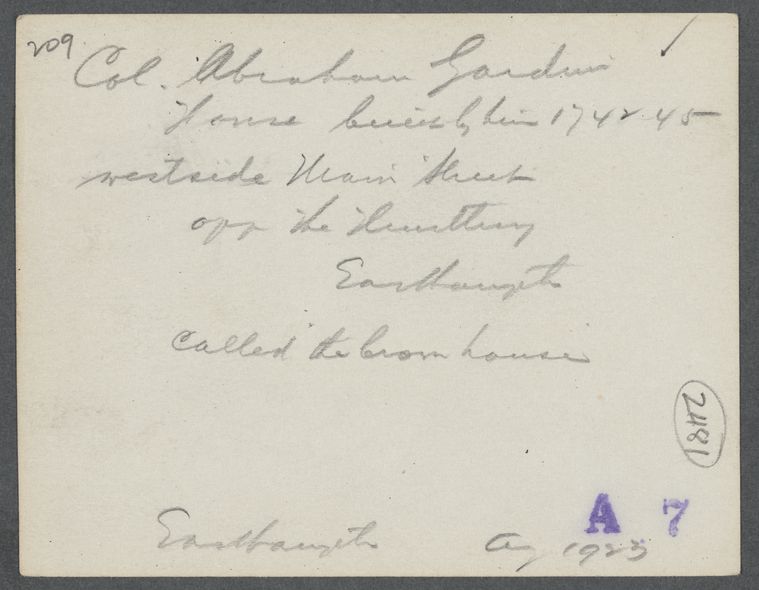 209
Col. Abraham Gardiner
House built by him 1742-45
westside Main Street
opp the Hunttling
Easthampton
Called "the brown house"
2481
A 7
Easthampton Aug 1923